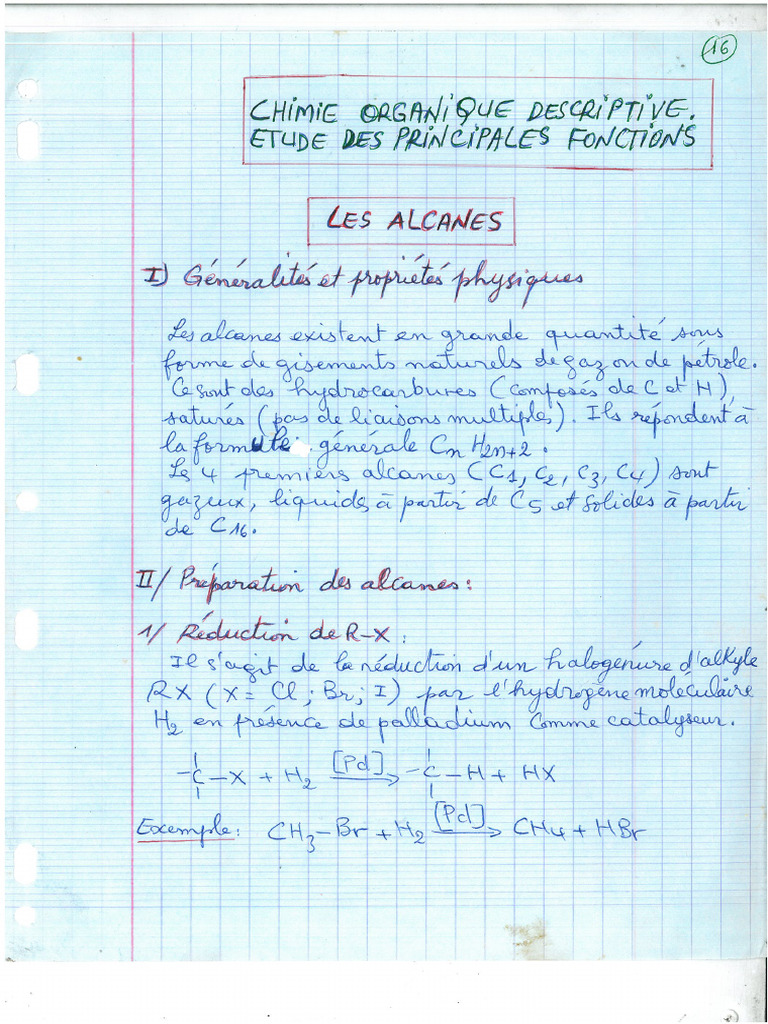 16
CHIMIE ORGANIQUE DESCRIPTIVE.
ETUDE DES PRINCIPALES FONCTIONS
LES ALCANES
I) Généralités et propriétés physiques
Les alcanes existent en grande quantité sous
forme de gisements naturels de gaz ou de pétrole.
Ce sont des hydrocarbures (composés de C et H),
saturés (pas de liaisons multiples). Ils répondent à
la formule générale CnH2n+2.
Les 4 premiers alcanes (C1, C2, C3, C4) sont
gazeux, liquides à partir de C5 et solides à partir
de C16.
II/ Préparation des alcanes:
1/ Réduction de R-X:
Il s'agit de la réduction d'un halogénure d'alkyle
RX (X = Cl; Br; I) par l'hydrogène moléculaire
H2 en présence de palladium comme catalyseur.
-C-X + H2 [Pd]→ -C-H + HX
Exemple: CH3-Br + H2 [Pd]→ CH4 + HBr